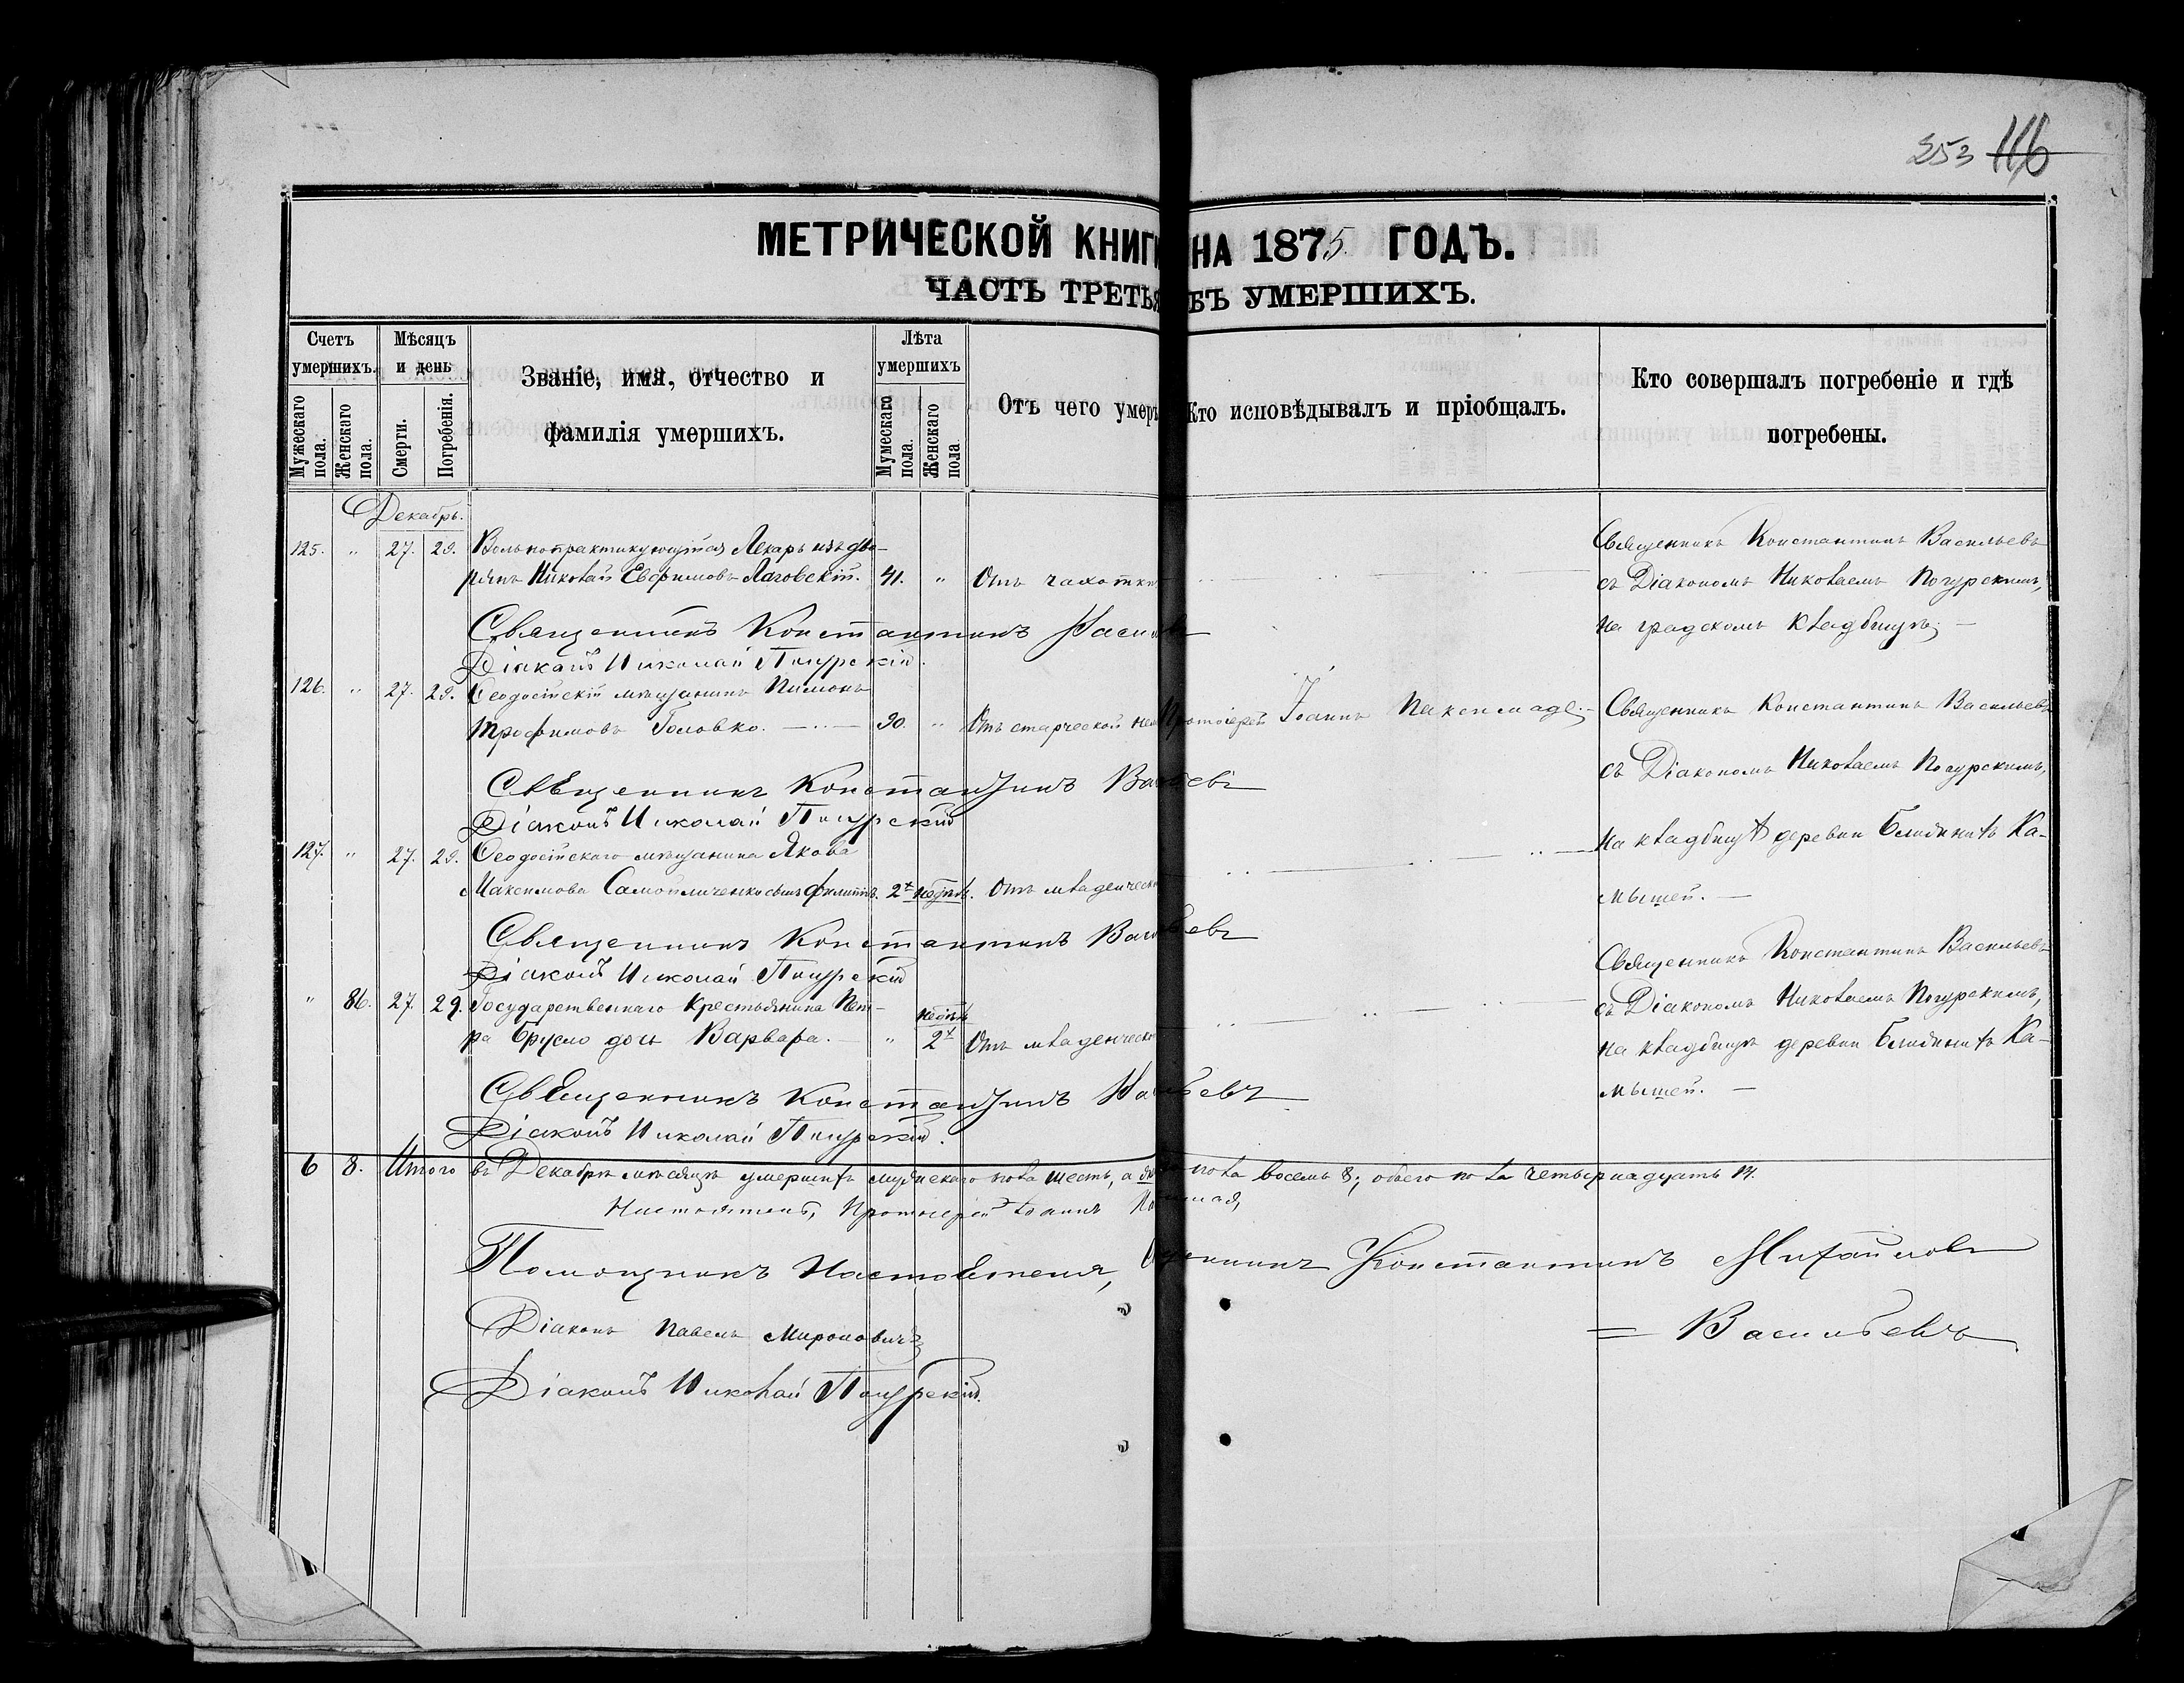 253 116
МЕТРИЧЕСКОЙ КНИГИ НА 1875 ГОДЪ.
ЧАСТЬ ТРЕТЬЯ БЪ УМЕРШИХЪ.
Счетъ умершихъ.
Мужескаго пола.
Женскаго пола.
Мѣсяцъ и день
Смерти.
Погребенія.
Званіе, имя, отчество и
фамилія умершихъ.
Лѣта умершихъ
Мумескаго пола.
Женскаго пола
Отъ чего умеръ
Кто исповѣдывалъ и пріобщалъ.
Кто совершалъ погребеніе и гдѣ
погребены.
Декабрь.
125. " 27. 29. Вольнопрактикующійся Лекарь изъ дво-
рянъ Николай Евфимовъ Лаговскій. 41. " Отъ чахотки
Священникъ Константинъ Васильевъ
съ Діакономъ Николаемъ Погурскимъ,
на градскомъ кладбищѣ;
Священникъ Константинъ
Діаконъ Николай Погурскій.
126. " 27. 29. Ѳеодосійскій мѣщанинъ Пимонъ
Трофимовъ Головко. 90. " Отъ старческой Протоіерей Іоаннъ
Священникъ Константинъ Васильевъ
съ Діакономъ Николаемъ Погурскимъ,
на кладбищѣ деревни Ближнихъ Ка-
мышей.
Священникъ Константинъ
Діаконъ Николай Погурскій
127. " 27. 29. Ѳеодосійскаго мѣщанина Якова
Максимова Самойличенко сынъ Филиппъ. 2х недѣль. Отъ младенческ
Священникъ Константинъ
Діаконъ Николай Погурскій
" 86. 27. 29. Государственнаго Крестьянина Пет-
ра Брусло дочь Варвара. " недѣль 2х Отъ младенческо
Священникъ Константинъ Васильевъ
съ Діакономъ Николаемъ Погурскимъ,
на кладбищѣ деревни Ближнихъ Ка-
мышей.
Священникъ Константинъ
Діаконъ Николай Погурскій.
6 8. Итого въ Декабрѣ мѣсяцѣ умершихъ мужескаго пола шесть, а пола восемь 8; обоего пола четырнадцать 14.
Настоятель, Протоіерей Іоаннъ
Помощникъ Настоятеля, Константинъ Михайловъ
= Васильевъ
Діаконъ Павелъ Мироновичъ
Діаконъ Николай Погурскій.